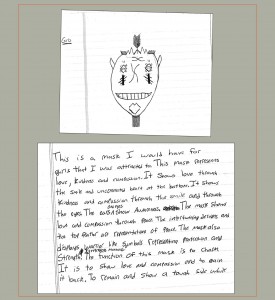 This is a mask I would have for
girls that I was attracted to. This mask represents
love, kindness and compassion. It shows love through
the smile and uncovered ears at the bottom. It shows
kindness and compassion through the smile and through
the eyes. The ears show awareness. The mask shows
love and compassion through face. The intertwining designs and
the top feather are representations of peace. The mask also
displays warrior like symbols representing protection and
strength. The function of this mask is to
It is to show love and compassion and to earn
it back. To remain and show a tough side while